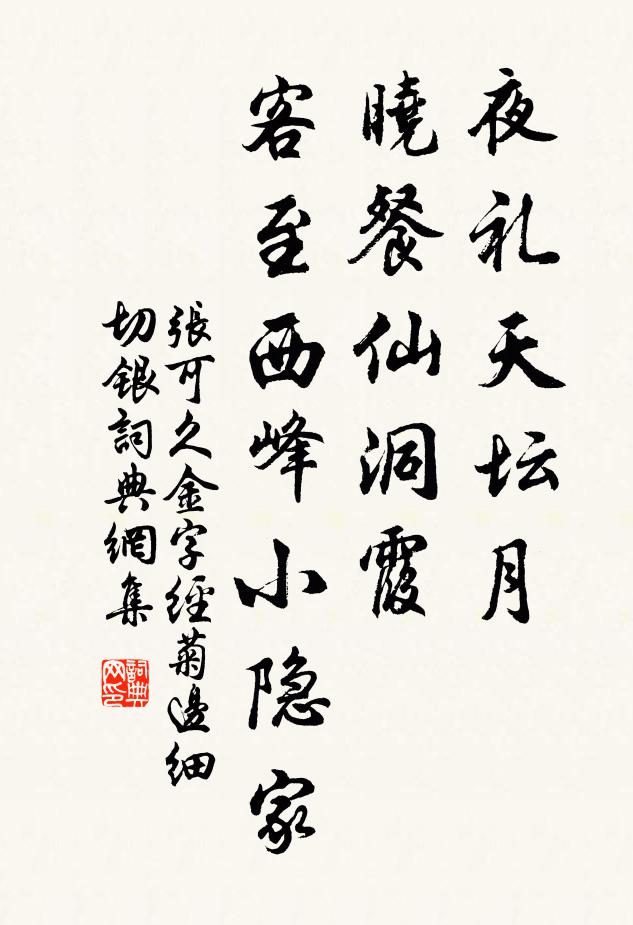 夜礼天坛月
曉餐仙洞霞
客至西峰小隐家
張可久金字經菊邊細
切銀詞典網集
詞典网印